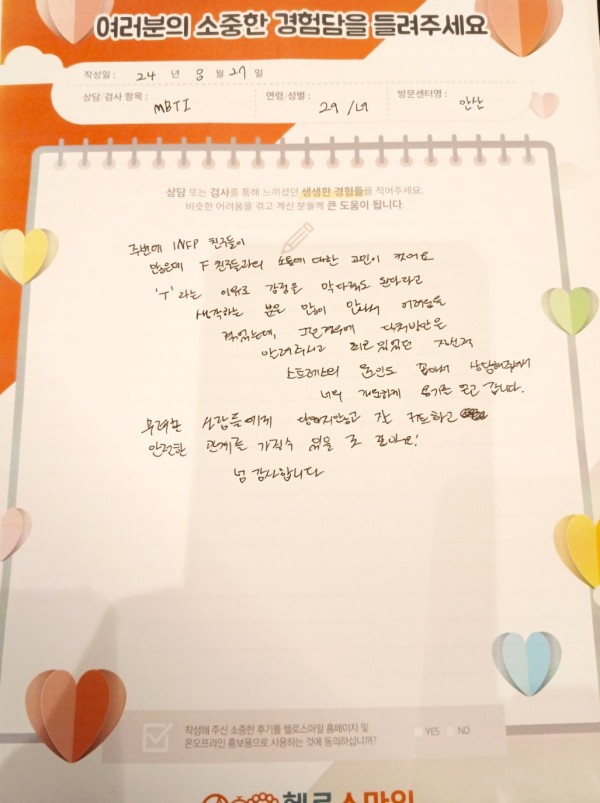 여러분의 소중한 경험담을 들려주세요
작성일 : 24 년 8 월 27 일
상담/검사 항목 : MBTI
연령/성별 : 29 / 녀
방문센터명 : 안산
상담 또는 검사를 통해 느끼셨던 생생한 경험들을 적어주세요.
비슷한 어려움을 겪고 계신 분들께 큰 도움이 됩니다.
주변에 INFP 친구들이
많은데 F 친구들과의 소통에 대한 고민이 컸어요
'T'라는 이유로 감정을 막대해도 된다라고
생각하는 분을 많이 만나서 어려움을
겪었는데, 대처방안은
알려주시고
스트레스의 원인도 상담해주셔서
너무 용기를 얻고 갑니다.
무례한 사람들에게 당하지만않고 잘 하고
안전한 관계를 가질수 있을 것 같아요!
넘 감사합니다
작성해 주신 소중한 후기를 헬로스마일 홈페이지 및
온오프라인 홍보용으로 사용하는 것에 동의하십니까?
YES NO
헬로스마일